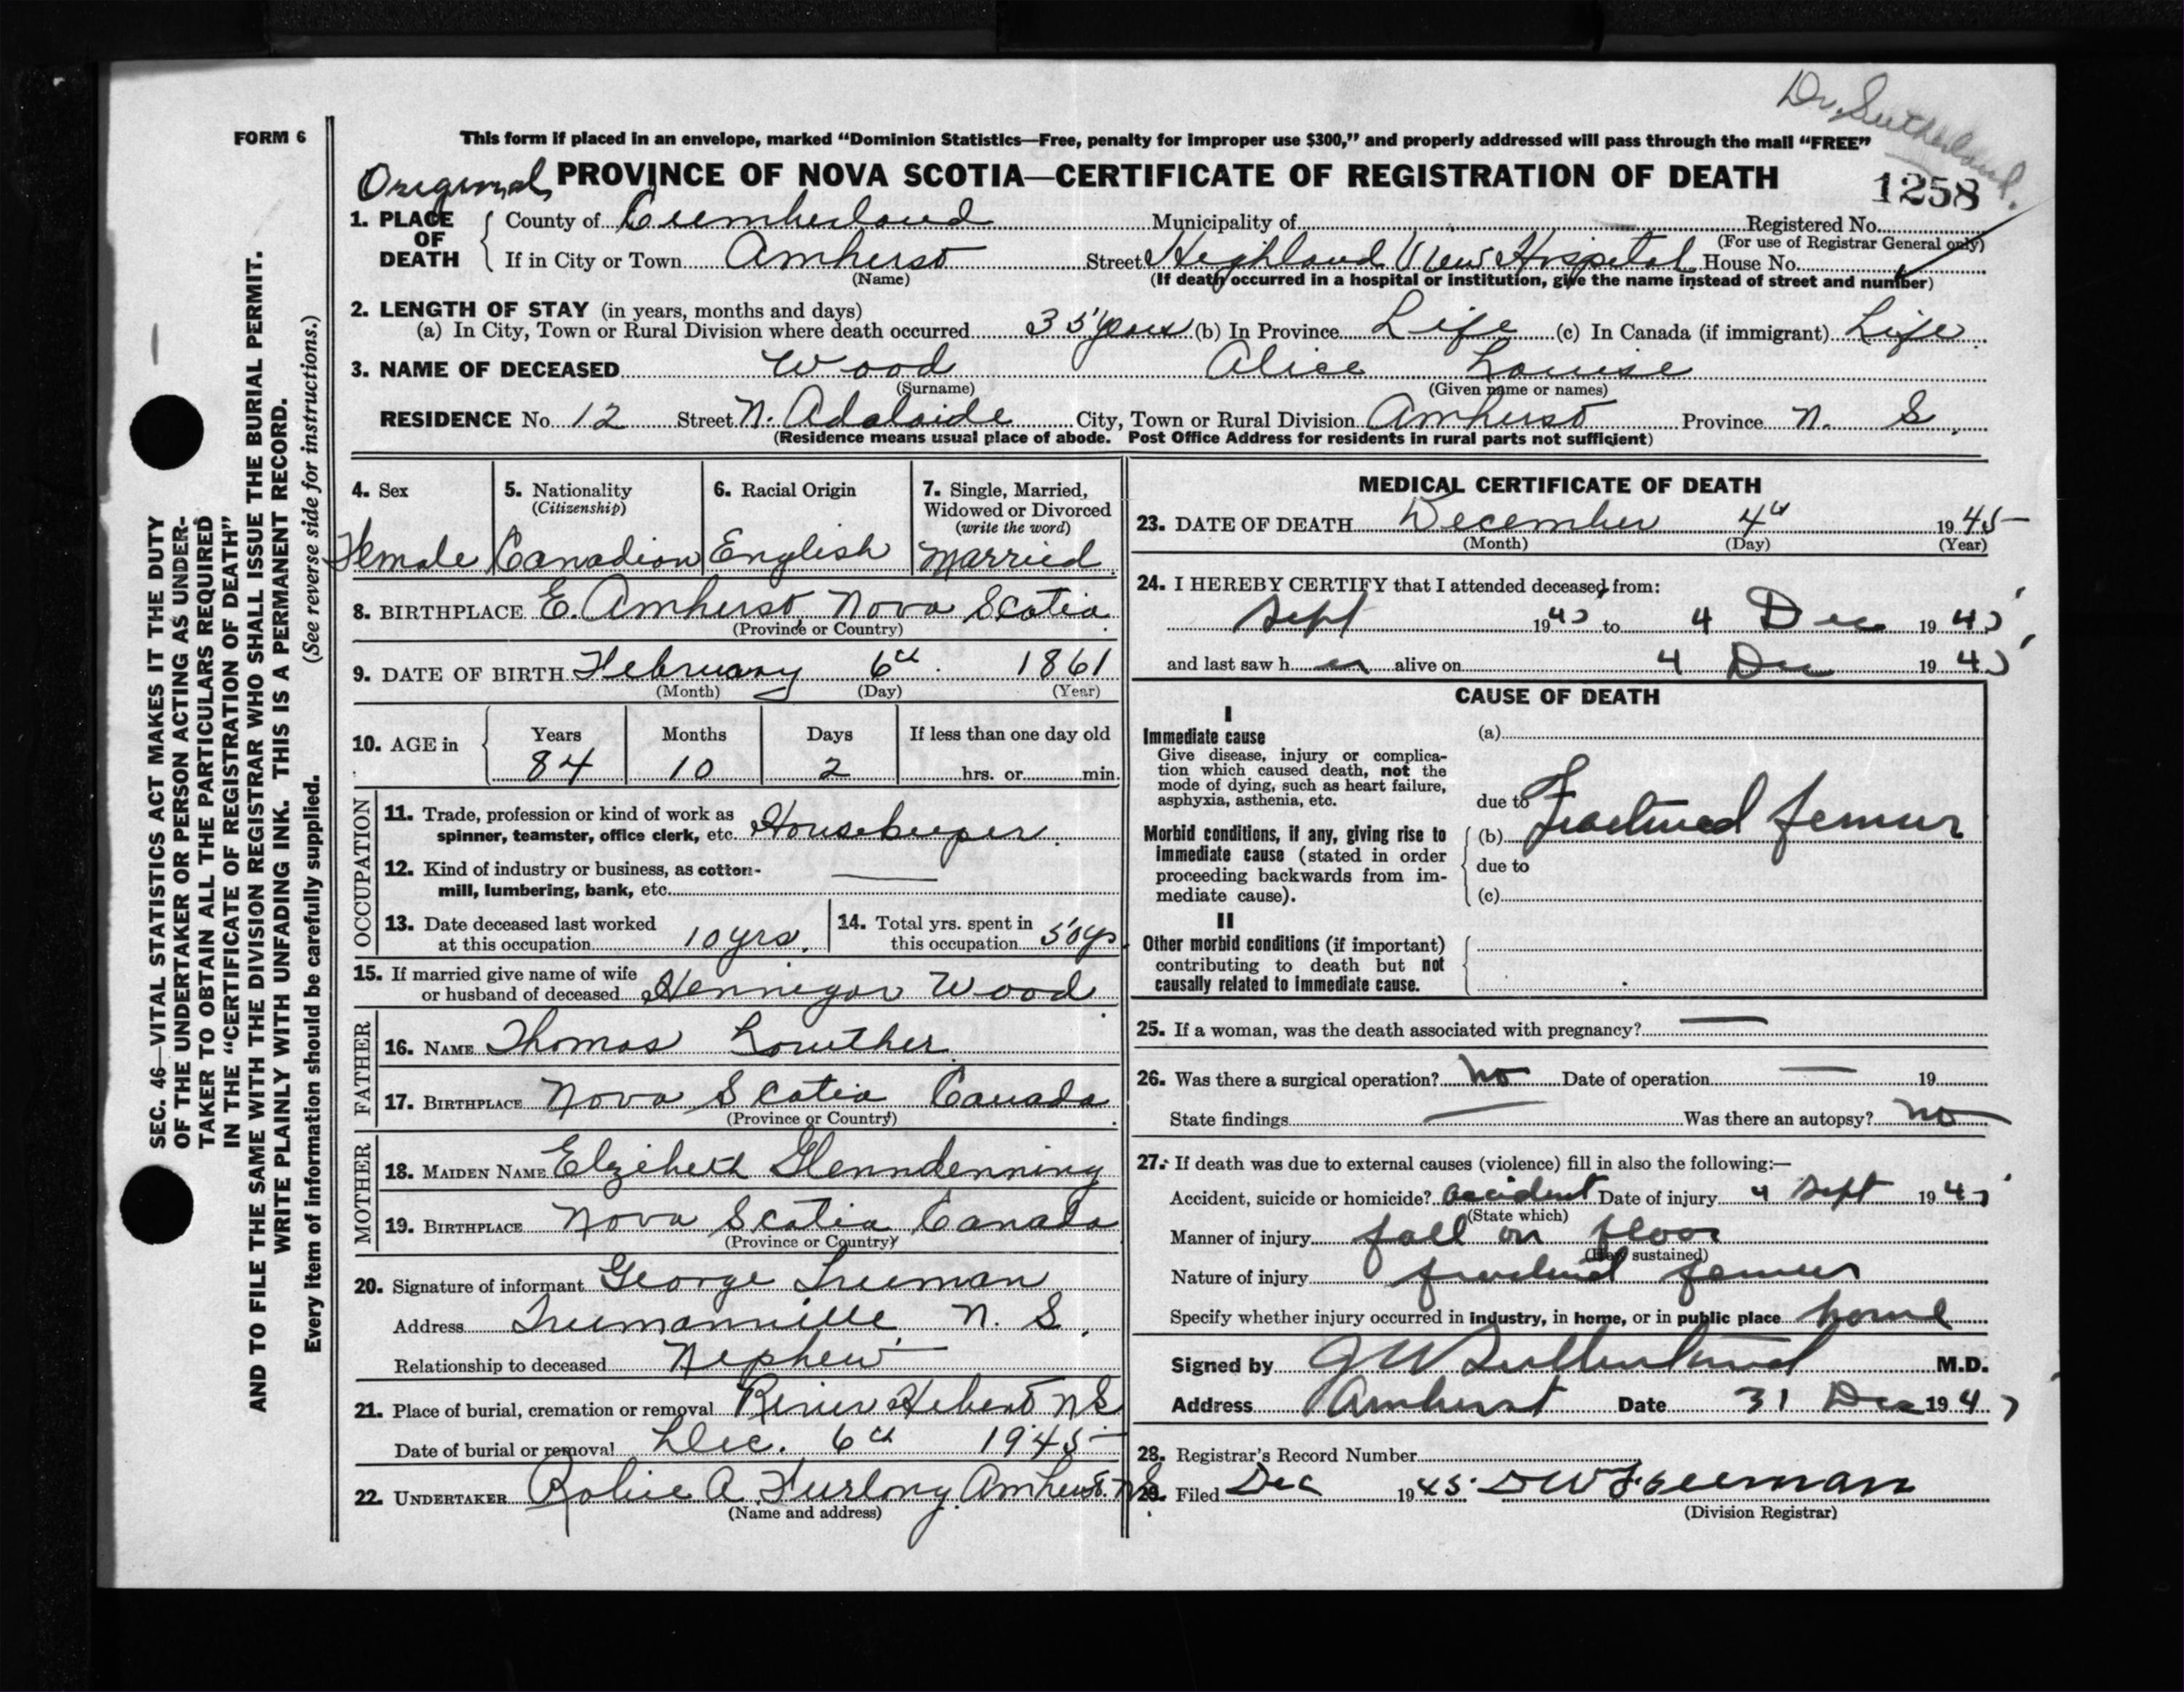 Dr. Sutherland.
FORM 6
This form if placed in an envelope, marked “Dominion Statistics—Free, penalty for improper use $300,” and properly addressed will pass through the mail “FREE”
Original PROVINCE OF NOVA SCOTIA—CERTIFICATE OF REGISTRATION OF DEATH
1258
1. PLACE OF DEATH
County of Cumberland Municipality of Registered No.
(For use of Registrar General only)
If in City or Town Amherst Street Highland View Hospital House No.
(Name) (If death occurred in a hospital or institution, give the name instead of street and number)
2. LENGTH OF STAY (in years, months and days)
(a) In City, Town or Rural Division where death occurred 35 years (b) In Province Life (c) In Canada (if immigrant) Life
3. NAME OF DECEASED Wood Alice Louise
(Surname) (Given name or names)
RESIDENCE No. 12 Street N. Adalaide City, Town or Rural Division Amherst Province N. S.
(Residence means usual place of abode. Post Office Address for residents in rural parts not sufficient)
4. Sex
Female
5. Nationality
(Citizenship)
Canadian
6. Racial Origin
English
7. Single, Married,
Widowed or Divorced
(write the word)
Married
8. BIRTHPLACE E. Amherst, Nova Scotia
(Province or Country)
9. DATE OF BIRTH February 6th 1861
(Month) (Day) (Year)
10. AGE in
Years Months Days If less than one day old
84 10 2 hrs. or min.
OCCUPATION
11. Trade, profession or kind of work as
spinner, teamster, office clerk, etc. Housekeeper
12. Kind of industry or business, as cotton-
mill, lumbering, bank, etc. —
13. Date deceased last worked
at this occupation 10 yrs.
14. Total yrs. spent in
this occupation 50 yrs
15. If married give name of wife
or husband of deceased Hennigar Wood
FATHER
16. NAME Thomas Lowther
17. BIRTHPLACE Nova Scotia Canada
(Province or Country)
MOTHER
18. MAIDEN NAME Elzibeth Glenndenning
19. BIRTHPLACE Nova Scotia Canada
(Province or Country)
20. Signature of informant George Treeman
Address Treemanville, N. S.
Relationship to deceased Nephew
21. Place of burial, cremation or removal River Hebert NS
Date of burial or removal Dec. 6th 1945
22. UNDERTAKER Robie A. Furlong Amherst. NS.
(Name and address)
MEDICAL CERTIFICATE OF DEATH
23. DATE OF DEATH December 4th 1945
(Month) (Day) (Year)
24. I HEREBY CERTIFY that I attended deceased from:
Sept 1945 to 4 Dec 1945
and last saw her alive on 4 Dec 1945
CAUSE OF DEATH
I
Immediate cause
Give disease, injury or complica-
tion which caused death, not the
mode of dying, such as heart failure,
asphyxia, asthenia, etc.
(a)
due to
Morbid conditions, if any, giving rise to
immediate cause (stated in order
proceeding backwards from im-
mediate cause).
(b) Fractured femur
due to
(c)
II
Other morbid conditions (if important)
contributing to death but not
causally related to immediate cause.
25. If a woman, was the death associated with pregnancy? —
26. Was there a surgical operation? No Date of operation — 19
State findings — Was there an autopsy? No
27. If death was due to external causes (violence) fill in also the following:—
Accident, suicide or homicide? accident Date of injury 4 Sept 1945
(State which)
Manner of injury fall on floor
(How sustained)
Nature of injury fractured femur
Specify whether injury occurred in industry, in home, or in public place home
Signed by J W Sutherland M.D.
Address Amherst Date 31 Dec 194
28. Registrar's Record Number
29. Filed Dec 1945
(Division Registrar)
SEC. 46—VITAL STATISTICS ACT MAKES IT THE DUTY
OF THE UNDERTAKER OR PERSON ACTING AS UNDER-
TAKER TO OBTAIN ALL THE PARTICULARS REQUIRED
IN THE “CERTIFICATE OF REGISTRATION OF DEATH”
AND TO FILE THE SAME WITH THE DIVISION REGISTRAR WHO SHALL ISSUE THE BURIAL PERMIT.
WRITE PLAINLY WITH UNFADING INK. THIS IS A PERMANENT RECORD.
Every item of information should be carefully supplied. (See reverse side for instructions.)